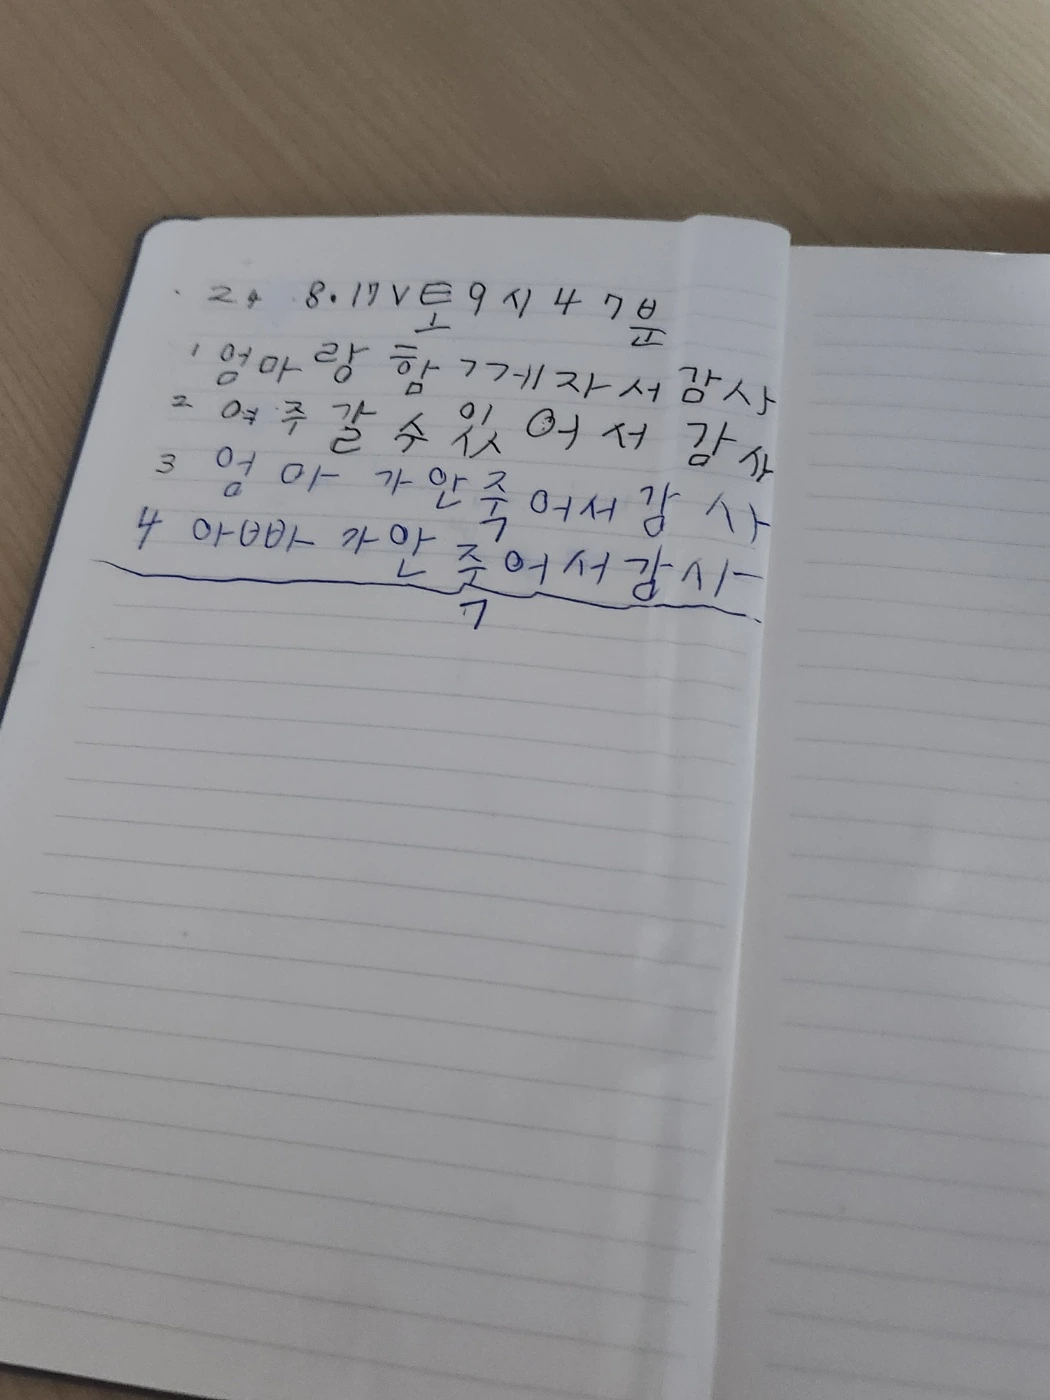 24 8.17 토 9시 47분
1 엄마랑 함께자서 감사
2 여주 갈 수 있어서 감사
3 엄마가 안죽어서 감사
4 아빠가 안죽어서 감사